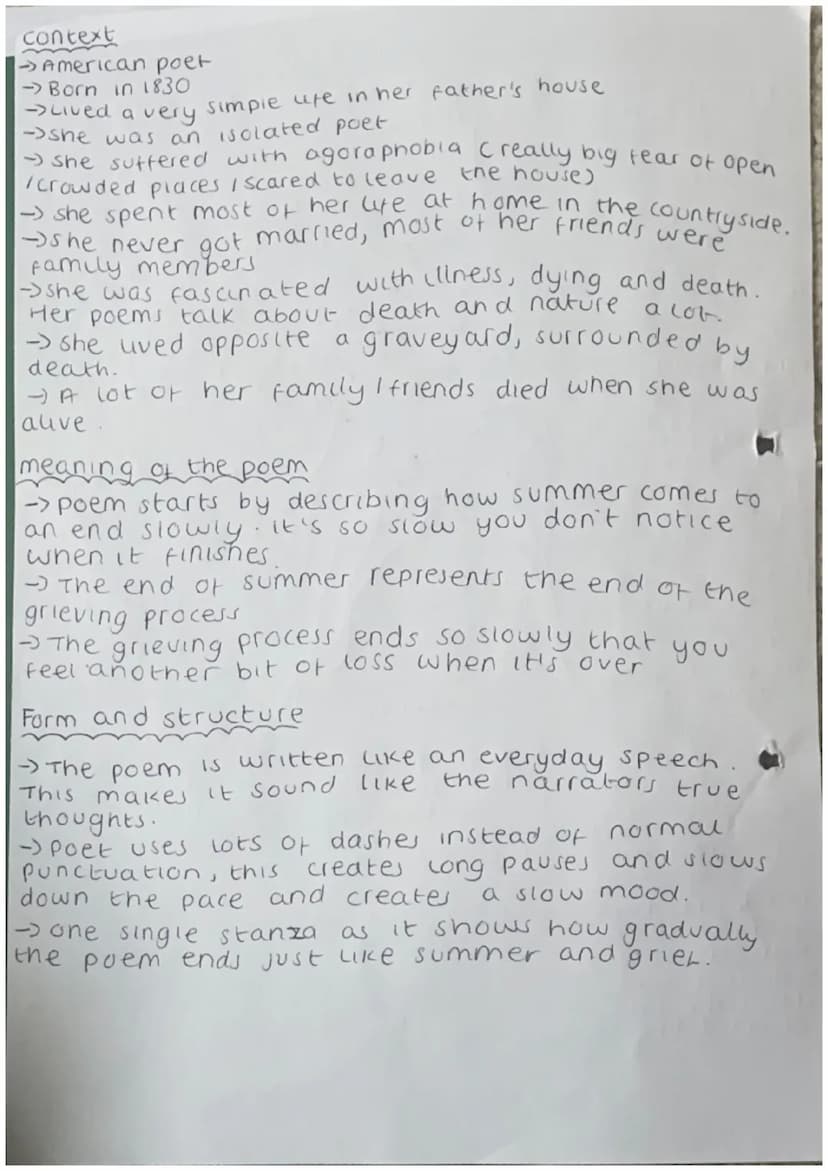 context
→ American poet
→ Born in 1830
→ Lived a very simple life in her father's house
→ she was an isolated poet
→ she suffered with agoraphobia (really big fear of open
/crowded places / scared to leave the house)
→ she spent most of her life at home in the countryside.
→ she never got married, most of her friends were
family members
→ she was fascinated with illness, dying and death.
Her poems talk about death and nature a lot.
→ she lived opposite a graveyard, surrounded by
death.
→ A lot of her family / friends died when she was
alive.
meaning of the poem
→ poem starts by describing how summer comes to
an end slowly. it's so slow you don't notice
when it finishes.
→ The end of summer represents the end of the
grieving process
→ The grieving process ends so slowly that you
feel another bit of loss when it's over
Form and structure
→ The poem is written like an everyday speech.
This makes it sound like the narrators true
thoughts.
→ poet uses lots of dashes instead of normal
punctuation, this creates long pauses and slows
down the pace and creates a slow mood.
→ one single stanza as it shows how gradually
the poem ends just like summer and grief.